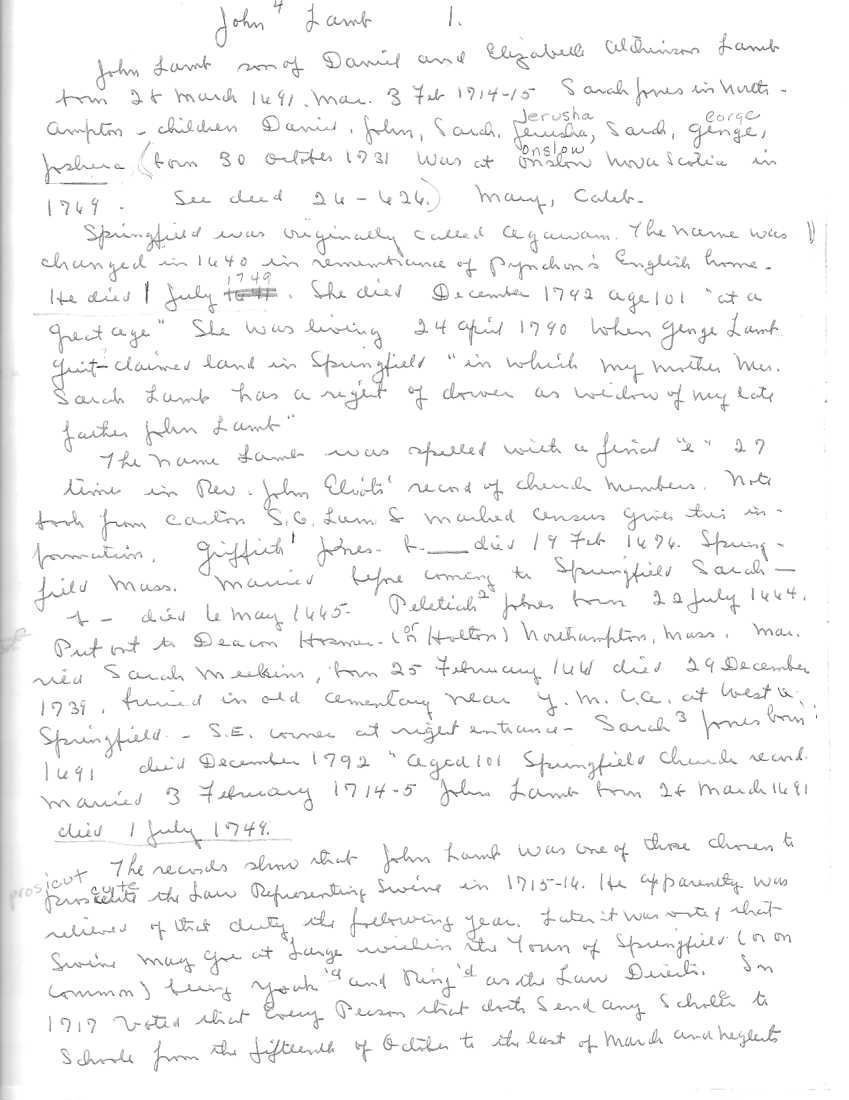 John 4 Lamb 1.
John Lamb son of Daniel and Elizabeth Atchinson Lamb
born 28 March 1691. Mar. 3 Feb 1714-15 Sarah Jones in North-
Jerusha eorge
ampton - children Daniel, John, Sarah, Jerusha, Sarah, George,
onslow
Joshua (born 30 October 1731 was at onslow Nova Scotia in
1769. See deed 24-624.) Mary, Caleb.
Springfield was originally called Agawam. The name was
changed in 1640 in remembrance of Pynchon's English home.
1749
He died 1 July. She died December 1792 age 101 "at a
great age" She was living 24 April 1790 when George Lamb
quit-claimed land in Springfield "in which my mother Mrs.
Sarah Lamb has a right of dower as widow of my late
father John Lamb"
The name Lamb was spelled with a final "e" 27
time in Rev. John Eliots' record of church members. Note
book from Carlton marked census gives this in-
formation. Griffith 1 Jones - b. __ died 19 Feb 1676. Spring-
field Mass. Married before coming to Springfield Sarah -
b - died 6 May 1665. Pelatiah 2 Jones born 22 July 1664.
or
Put out to Deacon Hosmer - (or Holton) Northampton, Mass. Mar-
ried Sarah Meekins, born 25 February 1666 died 29 December
1739, buried in old cementary near Y.M.C.A. at West
Springfield - S.E. corner at right entrance - Sarah 3 Jones born
1691 died December 1792 "aged 101 Springfield Church record.
Married 3 February 1714-5 John Lamb born 28 March 1691
died 1 July 1749.
The records show that John Lamb was one of those chosen to
prosicut
cute
the Law Representing Swine in 1715-16. He apparently was
relieved of that duty the following year. Later it was voted that
Swine may goe at Large within the Town of Springfield (or on
Common) being Yoak'd and Ring'd as the Law Directs. In
1717 Voted that Every Person that doth Send any Scholer to
Schoole from the fifteenth of October to the last of March and neglects